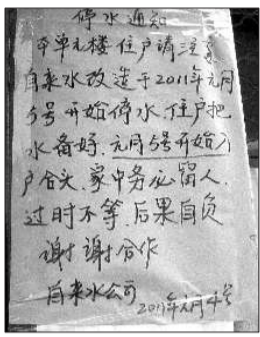 停水通知
本单元楼住户请注意
自来水改造于2011年元月
5号开始停水.住户把
水备好.元月5号开始入
户合头.家中务必留人.
过时不等.后果自负
谢谢合作
自来水公司
2011年元月4号